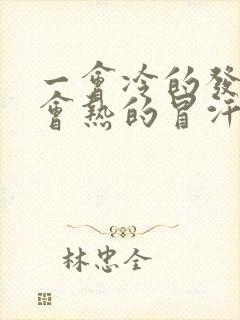 一會冷的發
會熱的冒汗
林忠全